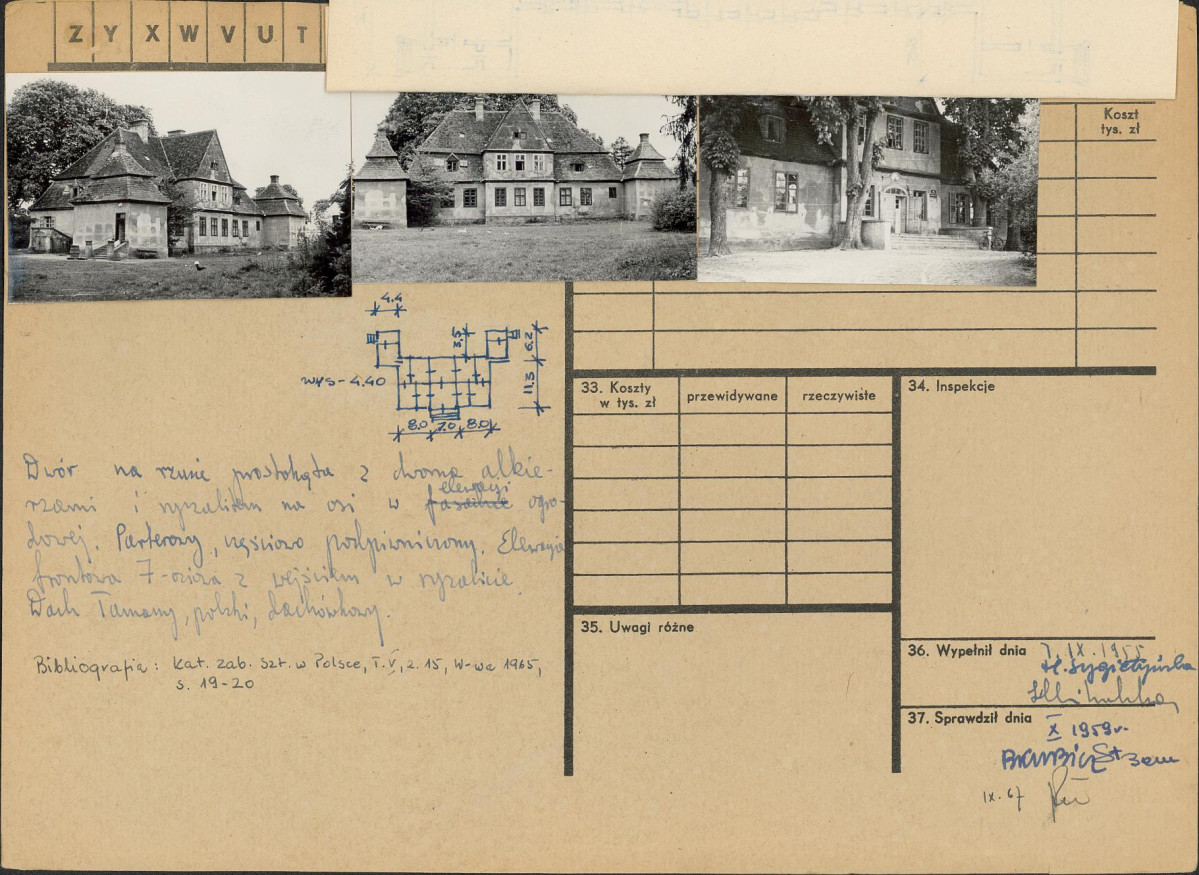 Z Y X W V U T
Koszt
tys. zł
4.4
3,5
6.2
11.3
wys - 4.40
8.0 7.0 8.0
Dwór na rzucie prostokąta z dwoma alkie-
rzami i ryzalitem na osi w fasadzie elewacji ogro-
dowej. Parterowy, częściowo podpiwniczony. Elewacja
frontowa 7-osiowa z wejściem w ryzalicie.
Dach łamany, polski, dachówkowy.
Bibliografia: Kat. Zab. Szt. w Polsce, T. V, z. 15, W-wa 1965,
s. 19-20
33. Koszty
w tys. zł
przewidywane
rzeczywiste
34. Inspekcje
35. Uwagi różne
36. Wypełnił dnia 7.IX.1955
H. Sygietyńska
37. Sprawdził dnia
X 1959r.
IX. 67